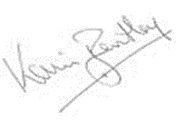 Karin Bentley